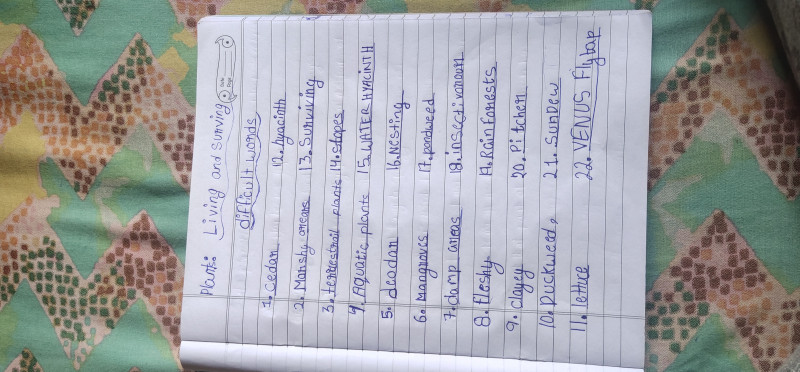 Plants: Living and surving
difficult words
1. Cedar
2. Marshy areas
3. terrestrail plants
4. Aquatic plants
5. deodar
6. Mangroves
7. damp areas
8. fleshy
9. clayey
10. Duckweed
11. lettuce
12. hyacinth
13. Surviving
14. slopes
15. WATER HYACINTH
16. Nesting
17. pondweed
18. insectivorous
19. Rain forests
20. Pitcher
21. SunDew
22. VENUS Flytap